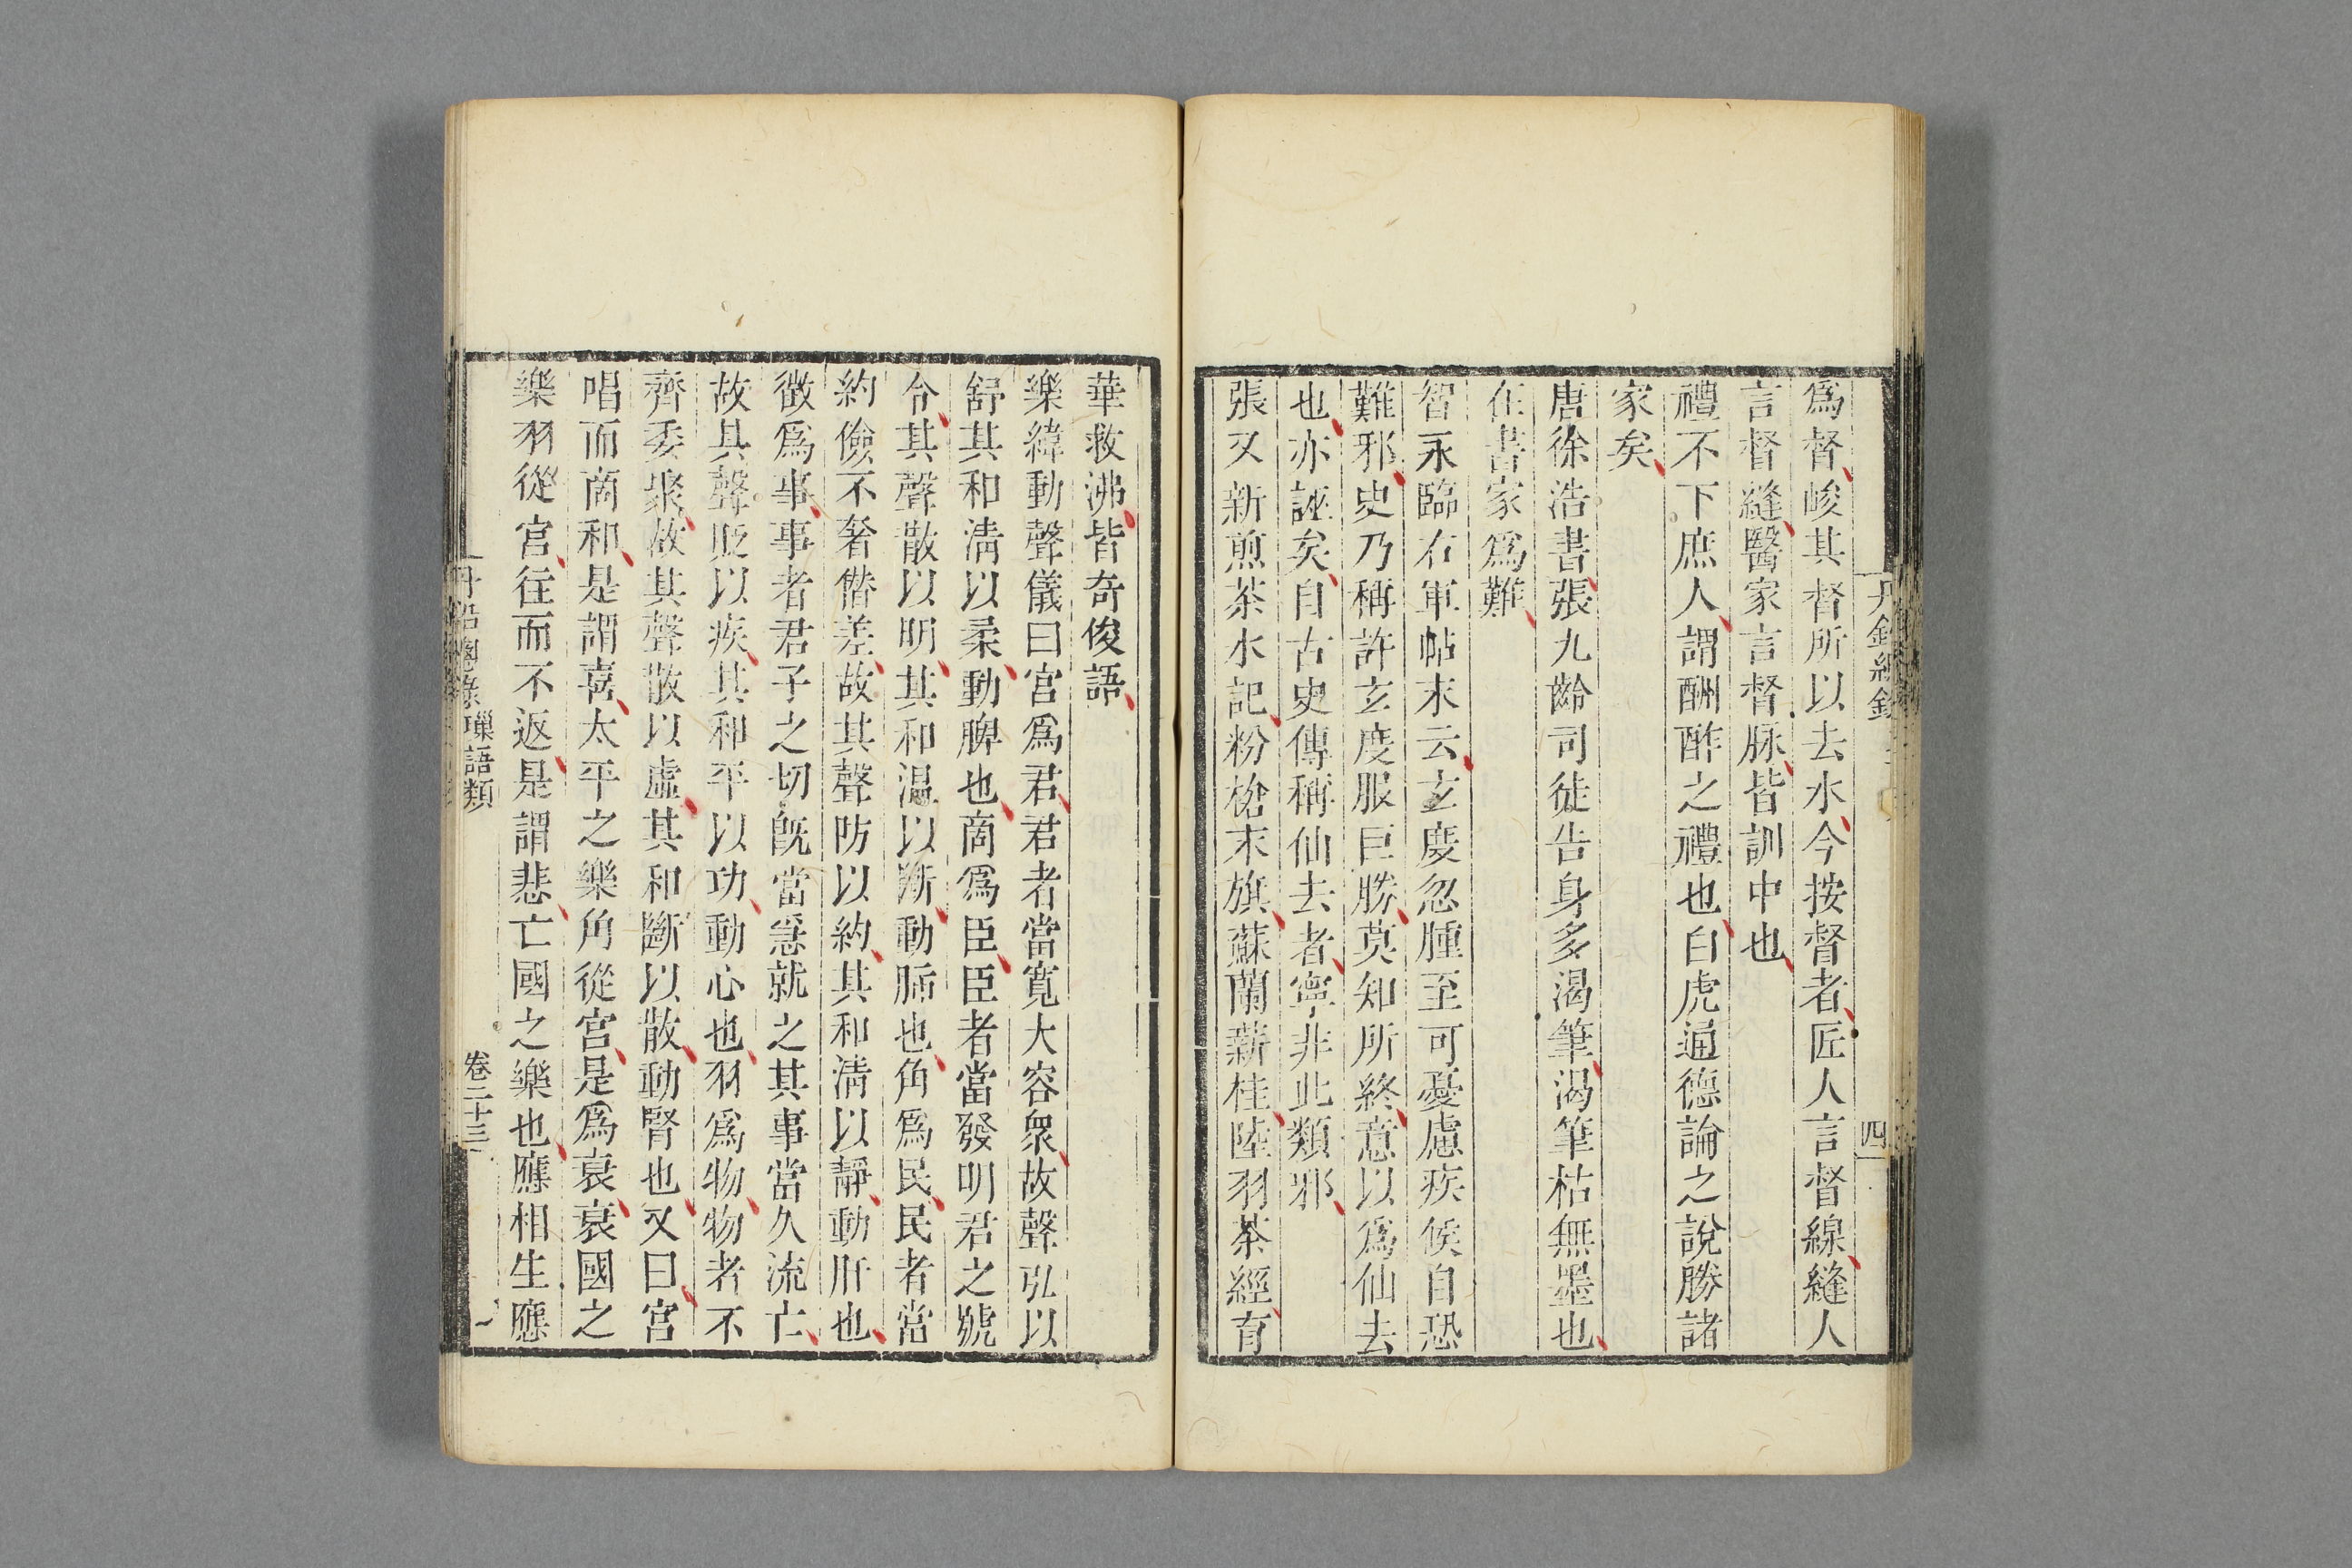 爲督峻其督所以去水今按督者匠人言督線縫人
言督縫醫家言督脉皆訓中也
禮不下庶人謂酬酢之禮也白虎通德論之說勝諸
家矣
唐徐浩書張九齡司徒告身多渴筆渴筆枯無墨也
在書家爲難
智永臨右軍帖末云玄度忽腫至可憂慮疾候自恐
難邪史乃稱許玄度服巨勝莫知所終意以爲仙去
也亦誣矣自古史傳稱仙去者寧非此類邪
張又新煎茶水記粉槍末旗蘇蘭薪桂陸羽茶經育
四
華救沸皆奇俊語
樂緯動聲儀曰宮爲君君者當寬大容衆故聲弘以
舒其和清以柔動脾也商爲臣臣者當發明君之號
令其聲散以明其和溫以斷動肺也角爲民民者當
約儉不奢僭差故其聲防以約其和清以靜動肝也
徵爲事事者君子之切旣當急就之其事當久流亡
故其聲貶以疾其和平以功動心也羽爲物物者不
齊委聚故其聲散以虛其和斷以散動腎也又曰宮
唱而商和是謂喜太平之樂角從宮是爲哀衰國之
樂羽從宮往而不返是謂悲亡國之樂也應相生應
丹鉛總錄瑣語類
卷二十三